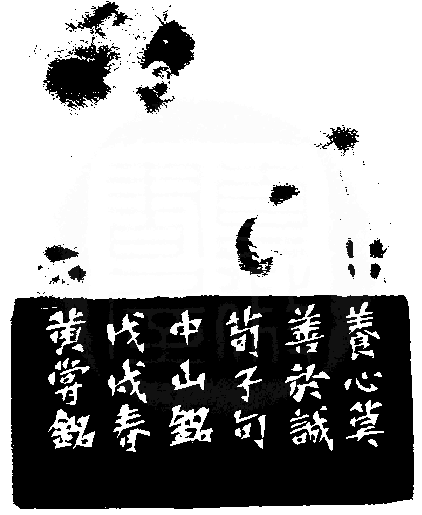 養心莫
善於誠
荀子句
中山銘
戊戌春
黄嘗銘